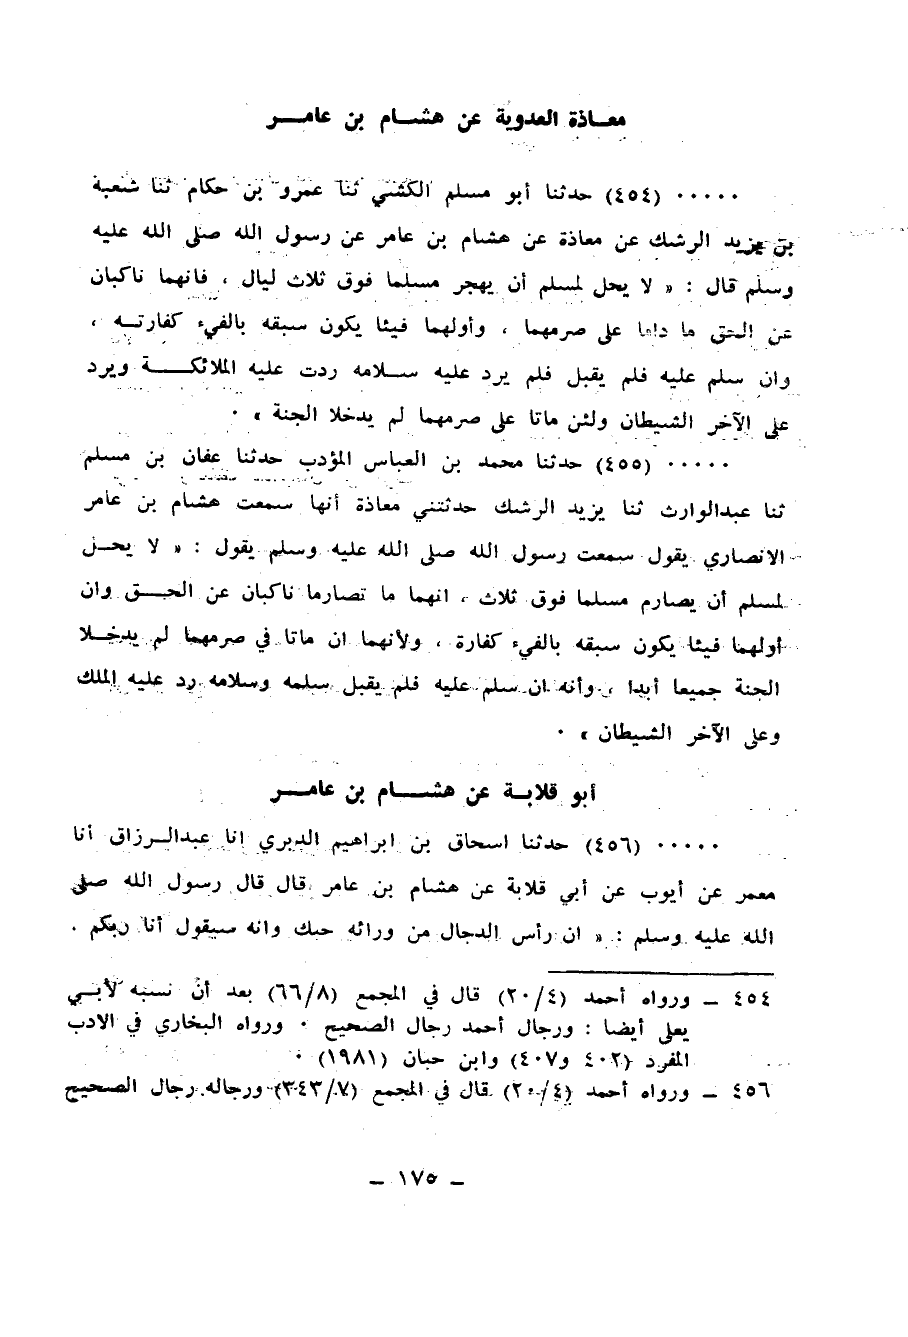 معـاذة العدوية عن هشــام بن عامــر
٠٠٠٠٠ (٤٥٤) حدثنا أبو مسلم الكشي ثنا عمرو بن حكام ثنا شعبة
بن يزيد الرشك عن معاذة عن هشام بن عامر عن رسول الله صلى الله عليه
وسلم قال : « لا يحل لمسلم أن يهجر مسلما فوق ثلاث ليال ، فانهما ناكبان
عن الحق ما داما على صرمهما ، وأولهما فيئا يكون سبقه بالفيء كفارتـه ،
وان سلم عليه فلم يقبل فلم يرد عليه سـلامه ردت عليه الملائكــة ويرد
على الآخر الشيطان ولئن ماتا على صرمهما لم يدخلا الجنة » ٠
٠٠٠٠٠ (٤٥٥) حدثنا محمد بن العباس المؤدب حدثنا عفان بن مسلم
ثنا عبدالوارث ثنا يزيد الرشك حدثتني معاذة أنها سمعت هشام بن عامر
الانصاري يقول سمعت رسول الله صلى الله عليه وسلم يقول : « لا يحـل
لمسلم أن يصارم مسلما فوق ثلاث ، انهما ما تصارما ناكبان عن الحـق وان
أولهما فيئا يكون سبقه بالفيء كفارة ، ولأنهما ان ماتا في صرمهما لم يدخـلا
الجنة جميعا أبدا ، وأنه ان سلم عليه فلم يقبل سلمه وسلامه رد عليه الملك
وعلى الآخر الشيطان » ٠
أبو قلابـة عن هشــــام بن عامــر
٠٠٠٠٠ (٤٥٦) حدثنا اسحاق بن ابراهيم الدبري انا عبدالـرزاق أنا
معمر عن أيوب عن أبي قلابة عن هشام بن عامر قال قال رسول الله صلى
الله عليه وسلم : « ان رأس الدجال من ورائه حبك وانه سيقول أنا ربكم ٠
٤٥٤ ـ ورواه أحمد (٢٠/٤) قال في المجمع (٦٦/٨) بعد أن نسبه لأبـي
يعلى أيضا : ورجال أحمد رجال الصحيح ٠ ورواه البخاري في الادب
المفرد (٤٠٢ و٤٠٧) وابن حبان (١٩٨١) ٠
٤٥٦ ـ ورواه أحمد (٢٠/٤) قال في المجمع (٣٤٣/٧) ورجاله رجال الصحيح
ـ ١٧٥ ـ